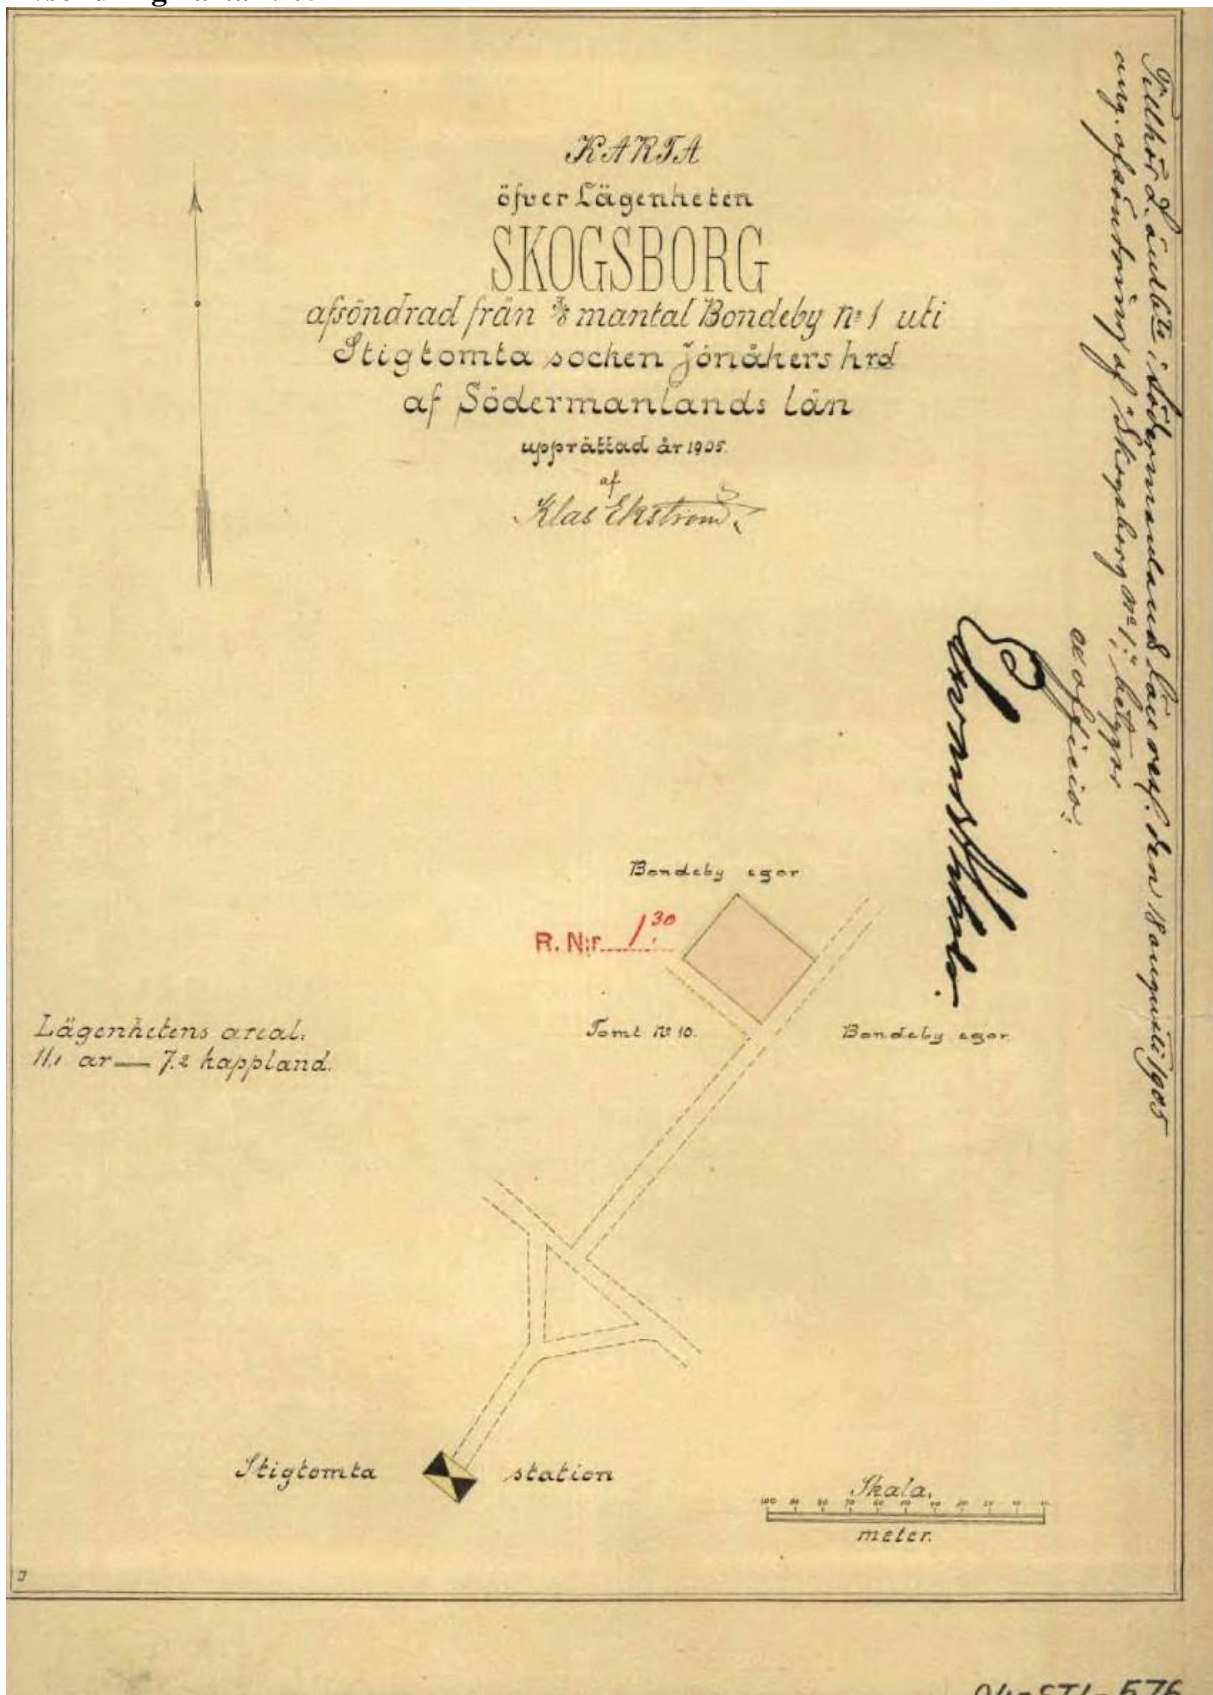 KARTA
öfver Lägenheten
SKOGSBORG
afsöndrad från 3/8 mantal Bondeby No 1 uti
Stigtomta socken Jönåkers hrd
af Södermanlands län
upprättad år 1905.
af
Klas Ekström
Tillhör Landtk i Södermanlands län resol. den 18 augusti 1905
ang. afsöndring af "Skogsborg No 1", betygar
ex officio:
Bondeby egor
R. N:r 1:30
Tomt No 10.
Bondeby egor.
Lägenhetens areal.
11,1 ar — 7.2 kappland.
Stigtomta station
Skala.
meter.
04-STI-576